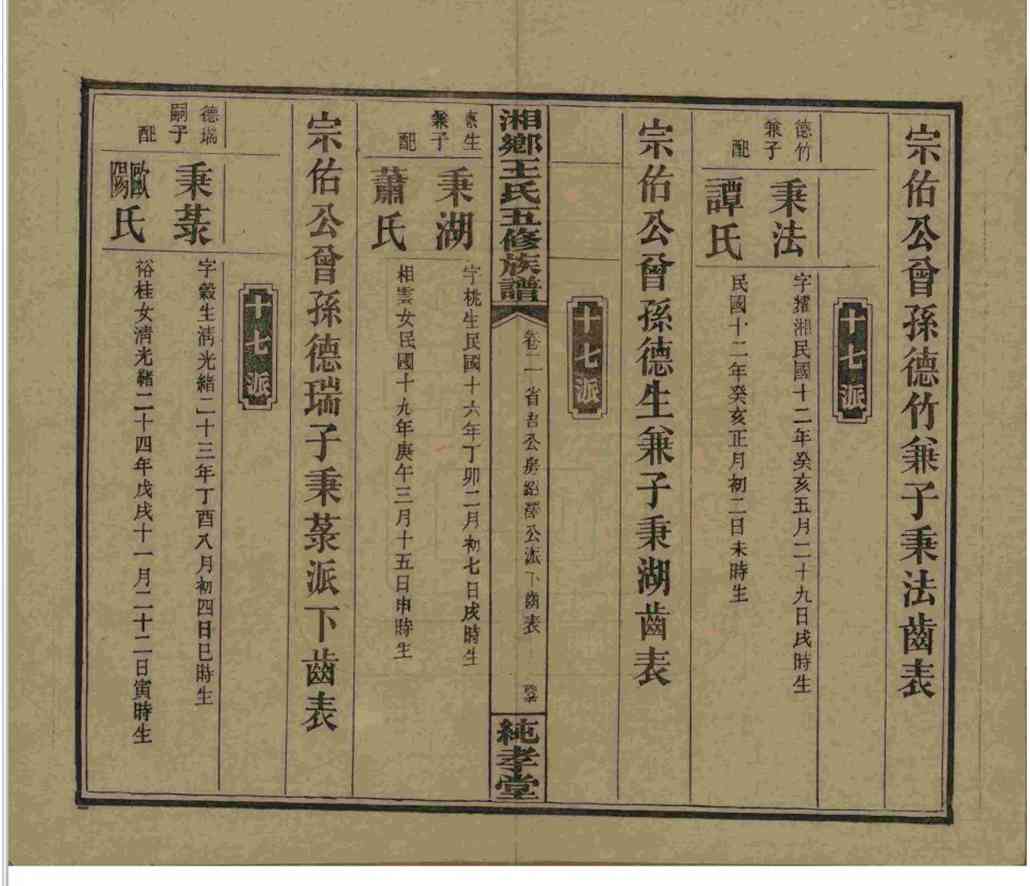 宗佑公曾孫德竹兼子秉法齒表
十七派
德竹
兼子
秉法
字擢湘民國十二年癸亥五月二十九日戌時生
配
譚氏
民國十二年癸亥正月初二日未時生
宗佑公曾孫德生兼子秉湖齒表
十七派
湘鄉王氏五修族譜
卷二
省吉公房
公派下齒表
純孝堂
生
兼子
秉湖
字桃生民國十六年丁卯二月初七日戌時生
配
蕭氏
相雲女民國十九年庚午三月十五日申時生
宗佑公曾孫德瑞子秉菉派下齒表
十七派
德瑞
嗣子
秉菉
字穀生清光緒二十三年丁酉八月初四日巳時生
配
歐陽氏
裕桂女清光緒二十四年戊戌十一月二十二日寅時生